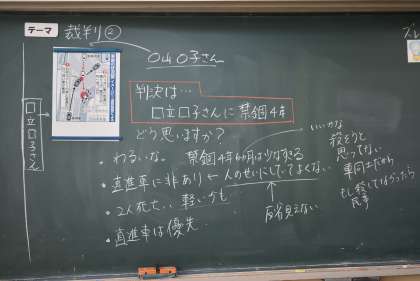 テーマ 裁判②
〇山〇子さん
判決は…
口立口子さんに禁錮4年
口立口子さん
どう思いますか?
・わるいな。 禁錮4年6ヶ月は少なすぎる
・直進車に非あり ← 人のせいにしていてよくない
・2人死亡… 軽いかも
・直進車は優先…
反省見えない
いいかな
殺そうと
思ってない
車同士だから
もし殺してしまったら
民事